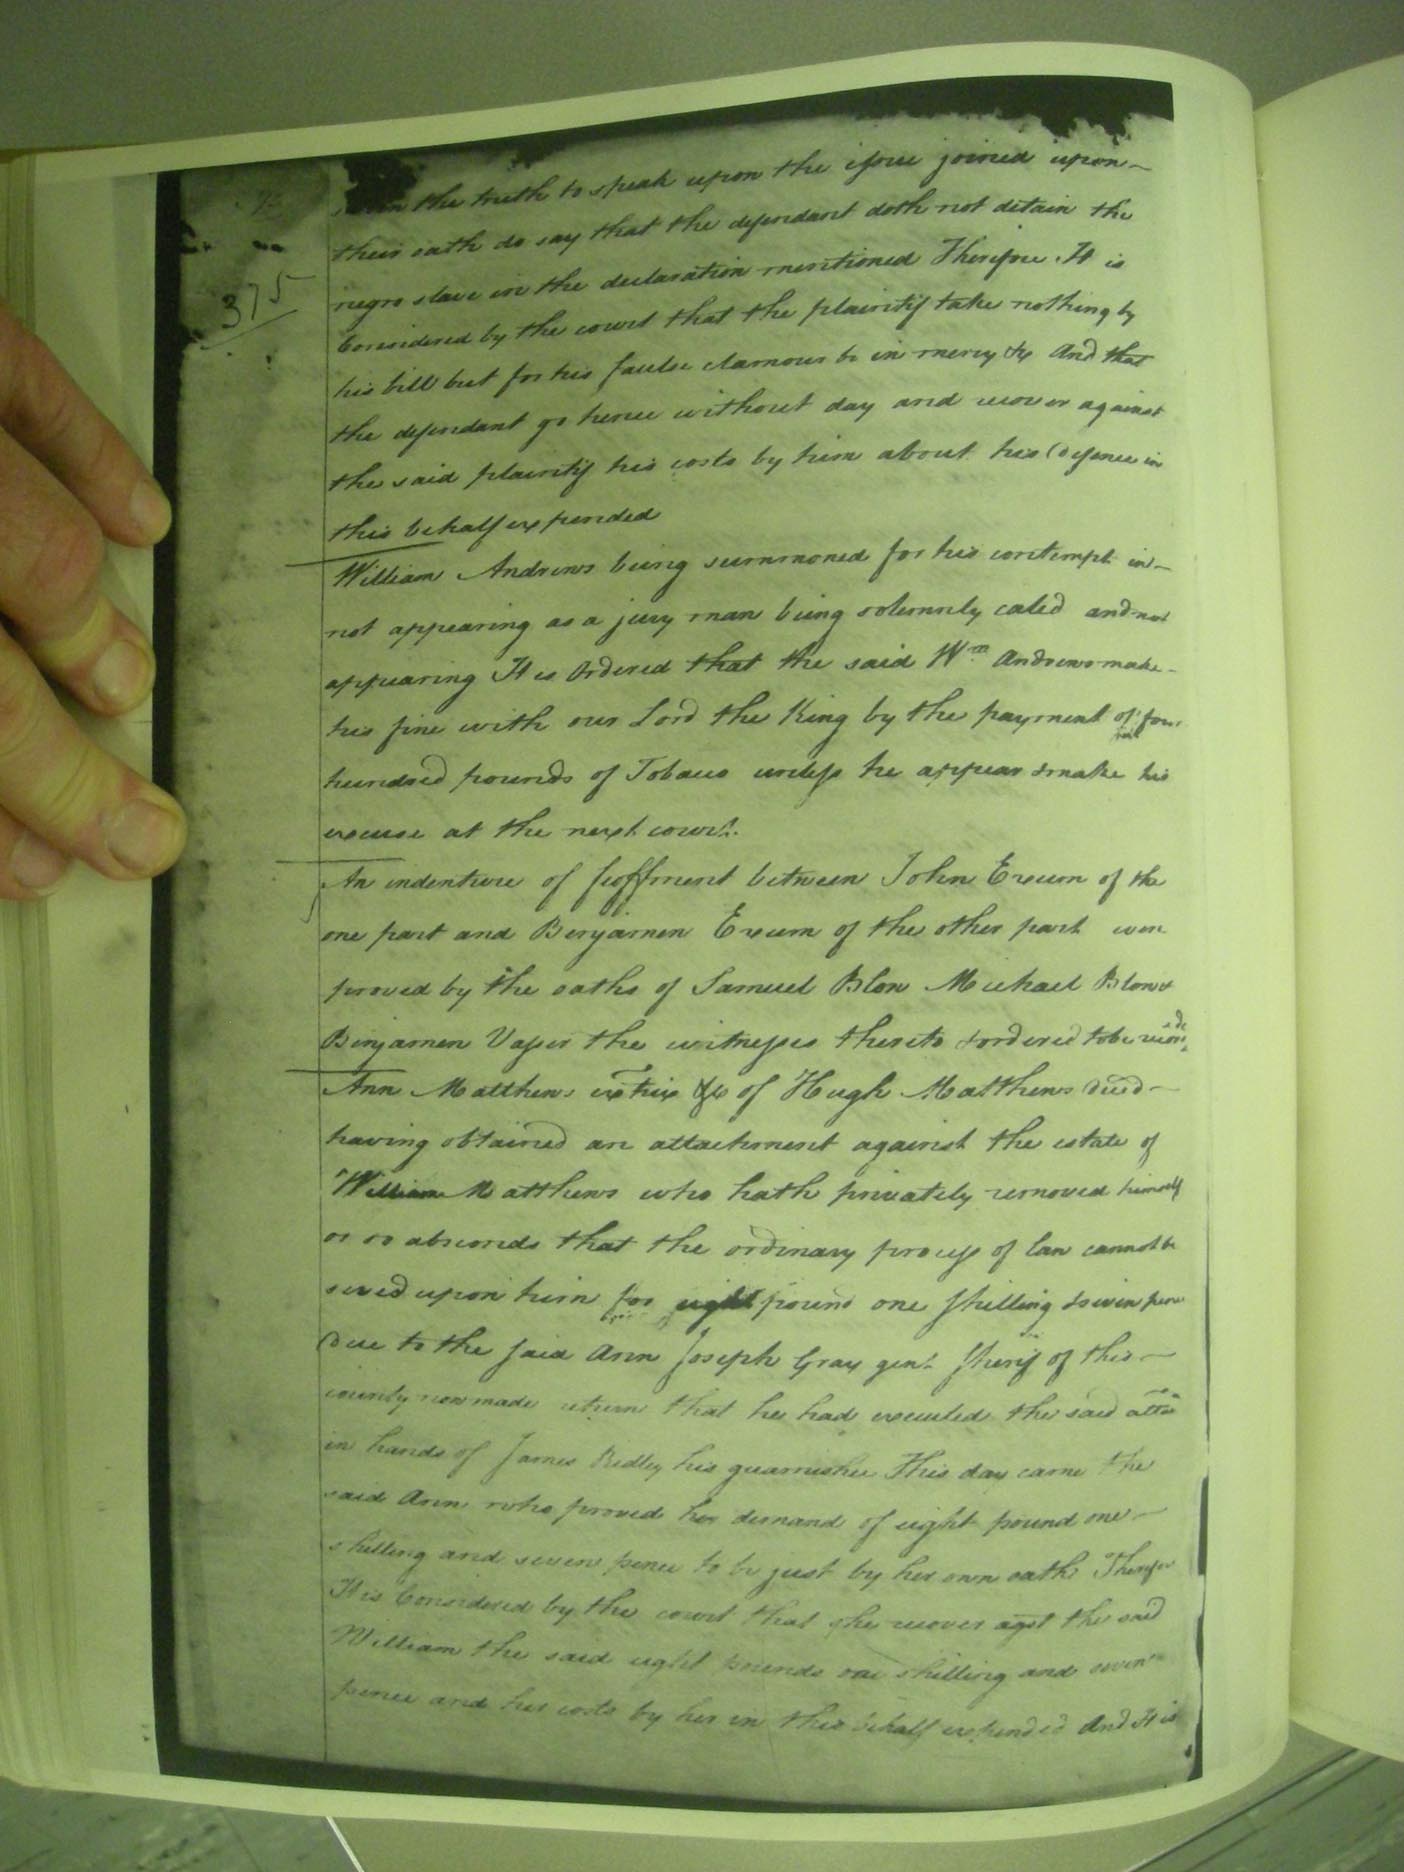 375
the truth to speak upon the issue joined upon
their oath do say that the defendant doth not detain the
negro slave in the declaration mentioned Therefore It is
Considered by the court that the plaintif take nothing by
his bill but for his faulse clamour be in mercy &c And that
the defendant go hence without day and recover against
the said plaintif his costs by him about his Defence in
this behalf expended
William Andrews being summoned for his contempt in
not appearing as a jury man being solemnly caled and not
appearing It is Ordered that the said Wm Andrews make
his fine with our Lord the King by the payment of four
hundred pounds of Tobacco unless he appear & make his
excuse at the next court
An indenture of feoffment between John Exum of the
one part and Benjamen Exum of the other part were
proved by the oaths of Samuel Blow Michael Blow &
Benjamen Vasser the witnesses thereto & ordered to be recorded
Ann Matthews extrix &c of Hugh Matthews decd
having obtained an attachment against the estate of
William Matthews who hath privately removed himself
or so absconds that the ordinary process of law cannot be
served upon him for eight pound one shilling & seven pence
due to the said Ann Joseph Gray gent Sherif of this
county now made return that he had executed the said atta
in hands of James Ridley his guarnishee This day came the
said Ann who proved her demand of eight pound one
shilling and seven pence to be just by her own oath Therefore
It is Considered by the court that she recover agst the said
William the said eight pounds one shilling and seven
pence and her costs by her in this behalf expended And It is